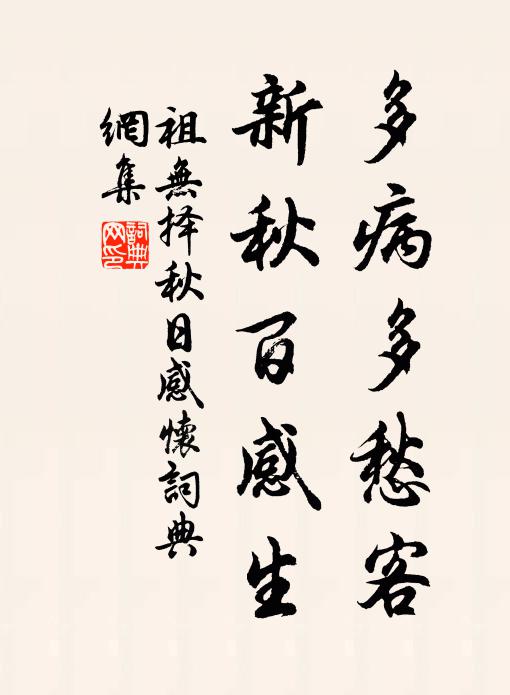 多病多愁客
新秋百感生
祖無择秋日感懷詞典
網集
詞典
网印